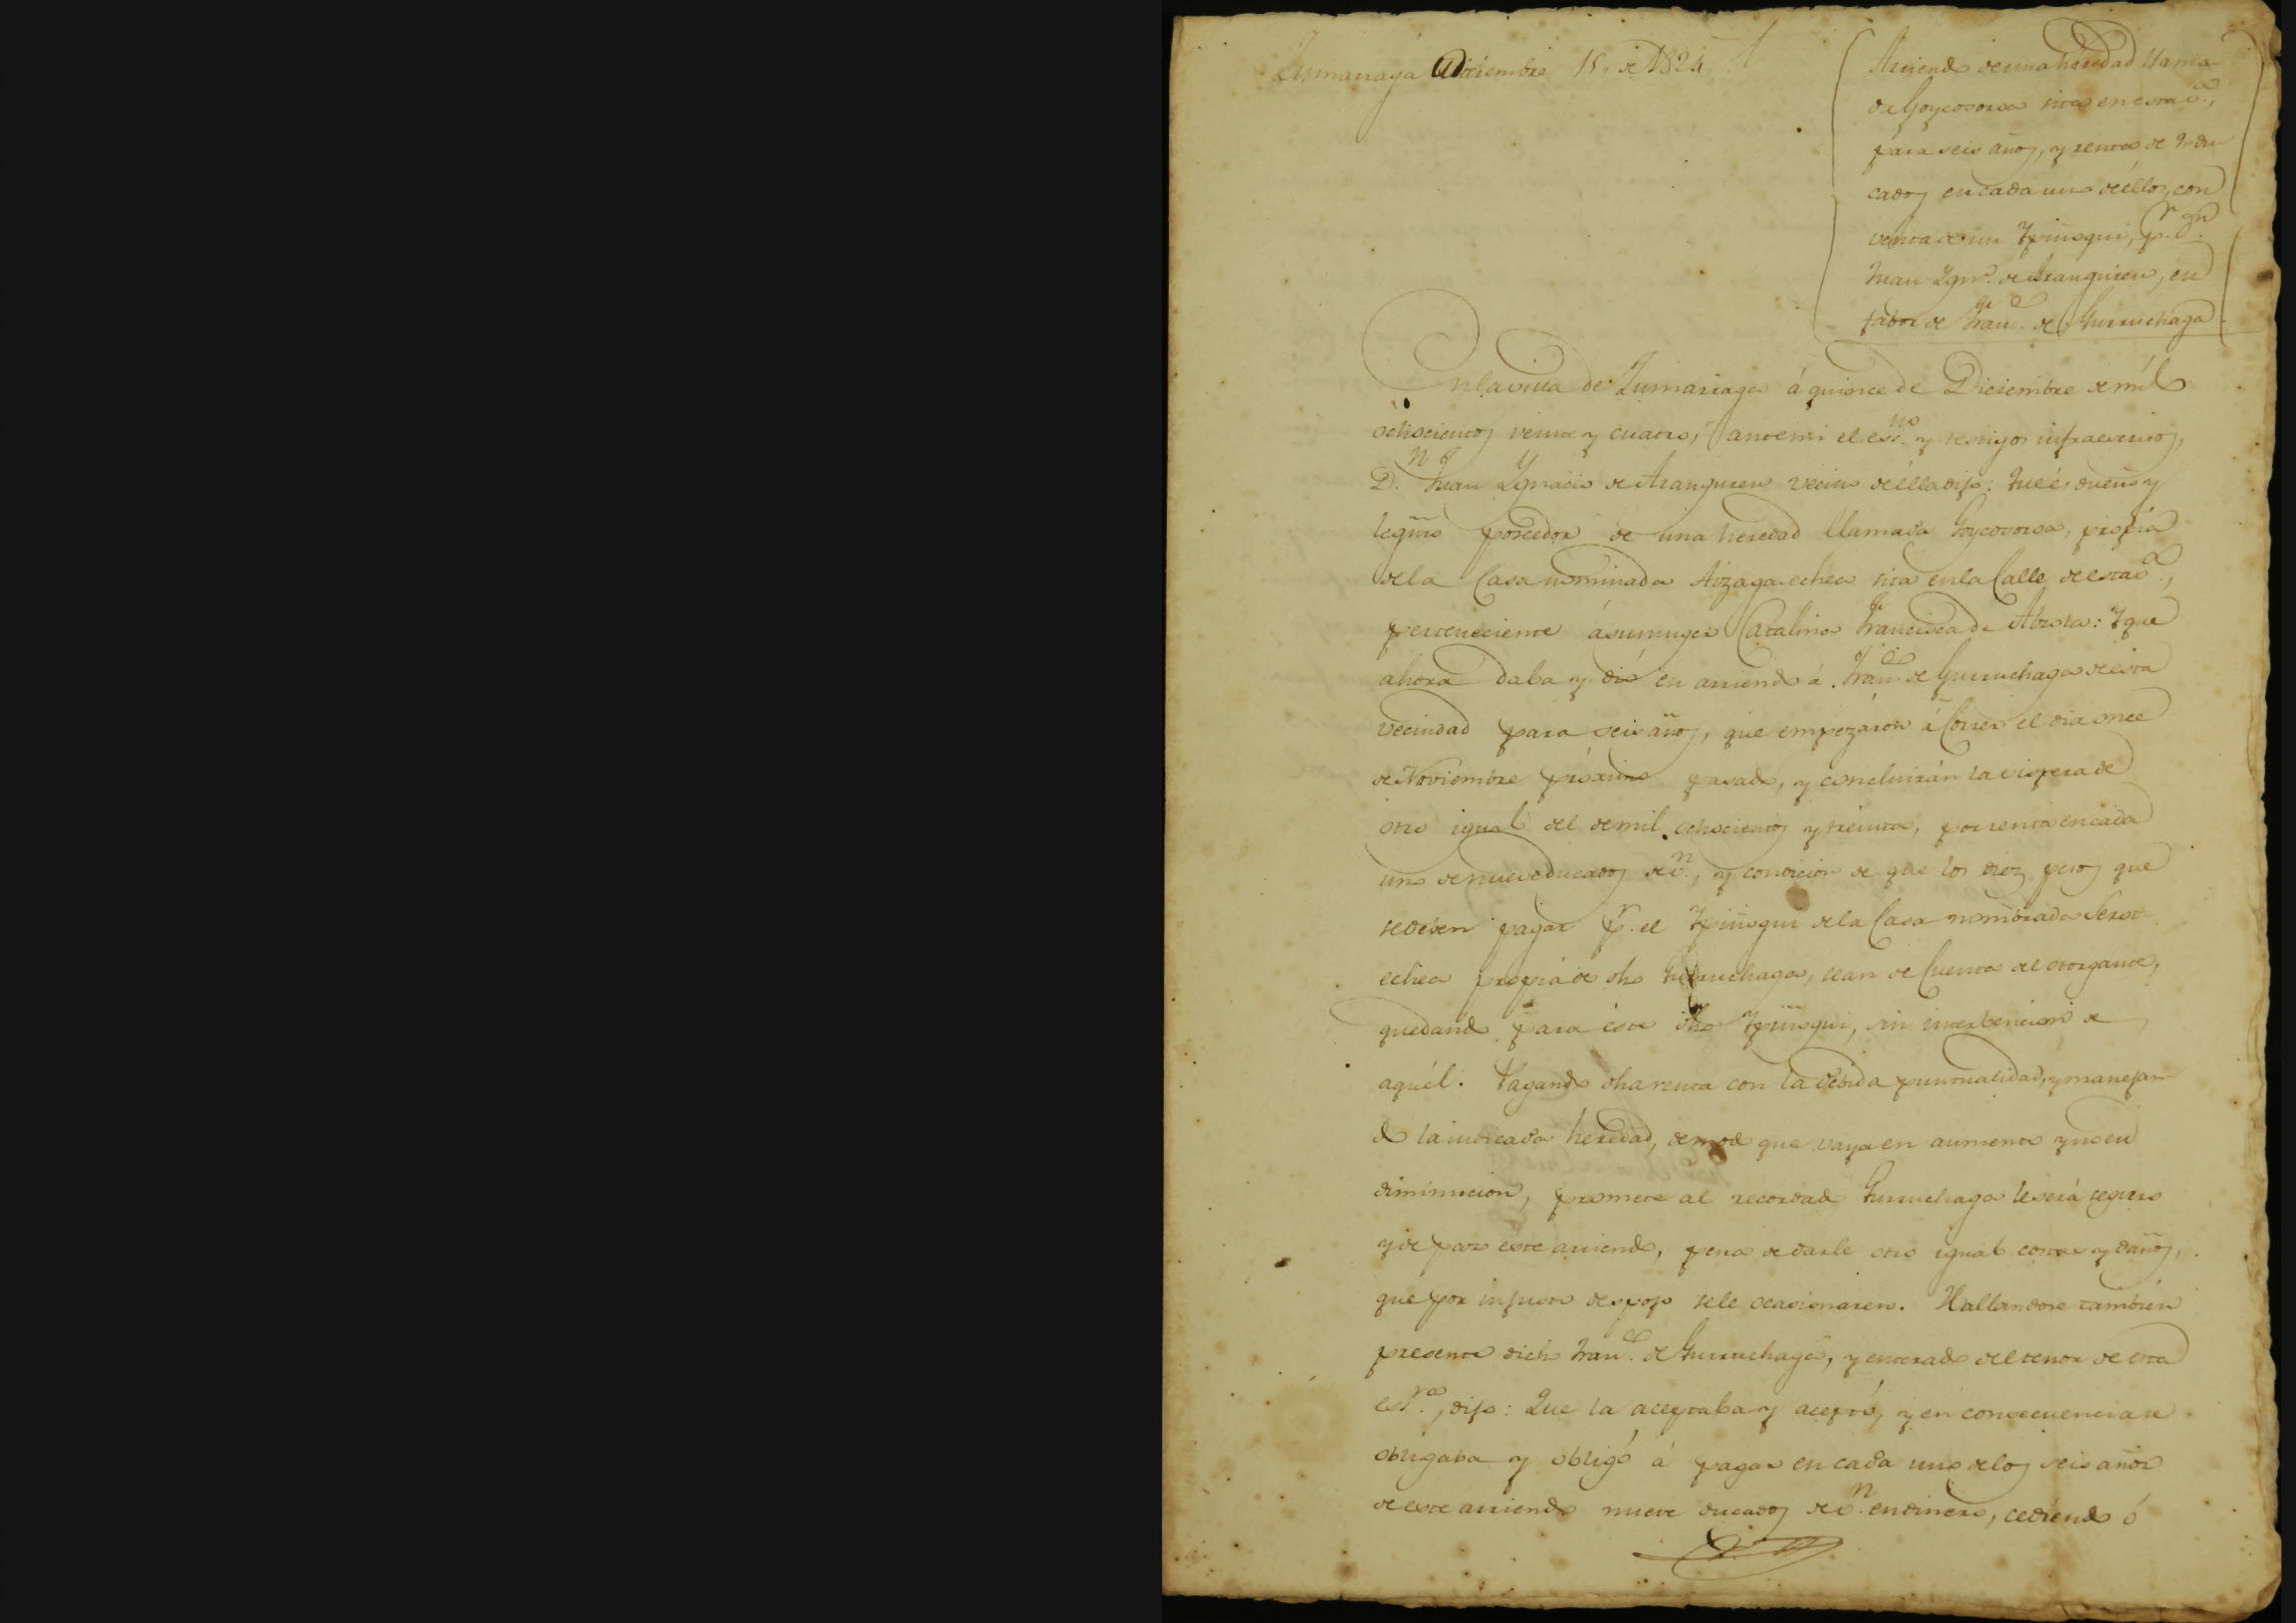 Zumarraga Diciembre 15. de 1824
Arriendo de una héredad llama-
da Goycosorsa sita en esta v.ª,
para seis años, y renta de 9. du-
cados en cada uno de éllos, con
venta de un Ypiñsgui, p.r D.n
Juan Ygn.o de Aranguren, en
fabor de Fran.co de Gurruchaga.
En la villa de Zumarraga á quince de Diciembre de mil
ochocientos veinte y cuatro, ante mi el ess.no y testigos infraescritos,
D.n Juan Ygnacio de Aranguren vecino de élla dijo: Que és dueño y
legmo poseedor de una heredad llamada Goycosorsa, propia
de la Casa nominada Aizaga-echea sita en la Calle de esta v.ª,
perteneciente á su muger Catalina Francisca de : Y que
ahora daba y dió en arriendo á Fran.co de Gurruchaga de esta
vecindad para seis años, que empezaron á Correr el dia once
de Noviembre próximo pasado, y concluirán la vispera de
otro igual del de mil ochocientos y treinta, por renta en cada
uno de nueve ducados de v.n, y condicion de que los diez pesos que
se deben pagar p.r el Ypiñsgui de la Casa nombrada Serot-
echea propia de dho Gurruchaga, sean de Cuenta del otorgante,
quedando para éste dho Ypiñsgui, sin interbencion de
aquél. Pagando dha renta con la debida puntualidad, y manejan-
do la indicada heredad, de modo que vaya en aumento y no en
diminucion, promete al recordado Gurruchaga le será seguro
y de paz este arriendo, pena de darle otro igual costas y daños,
que por injusto despojo se le ocasionaren. Hallandose tambien
presente dicho Fran.co de Gurruchaga, y enterado del tenor de esta
ess.ra, dijo: Que la aceptaba y aceptó, y en consecuencia se
obligaba y obligó á pagar en cada uno de los seis años
de este arriendo nueve ducados de v.n en dinero, cediendo ó